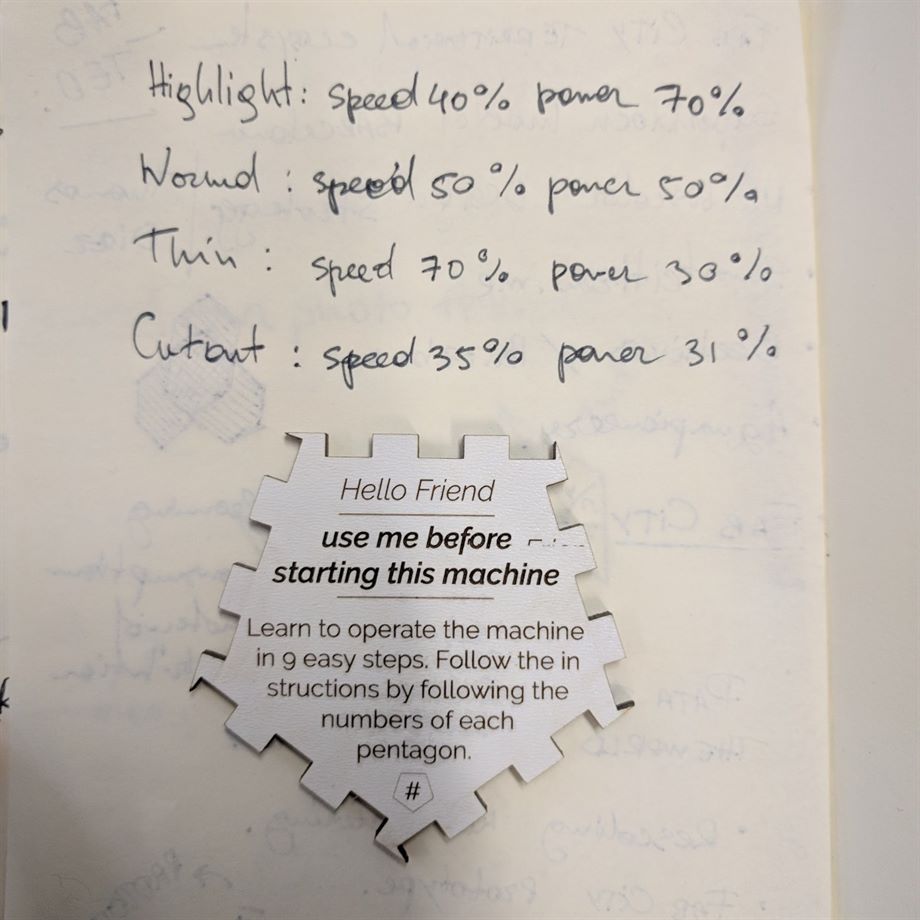 Highlight: speed 40% power 70%
Normal : speed 50% power 50%
Thin : speed 70% power 30%
Cutout : speed 35% power 31%
Hello Friend
use me before
starting this machine
Learn to operate the machine
in 9 easy steps. Follow the in
structions by following the
numbers of each
pentagon.
#